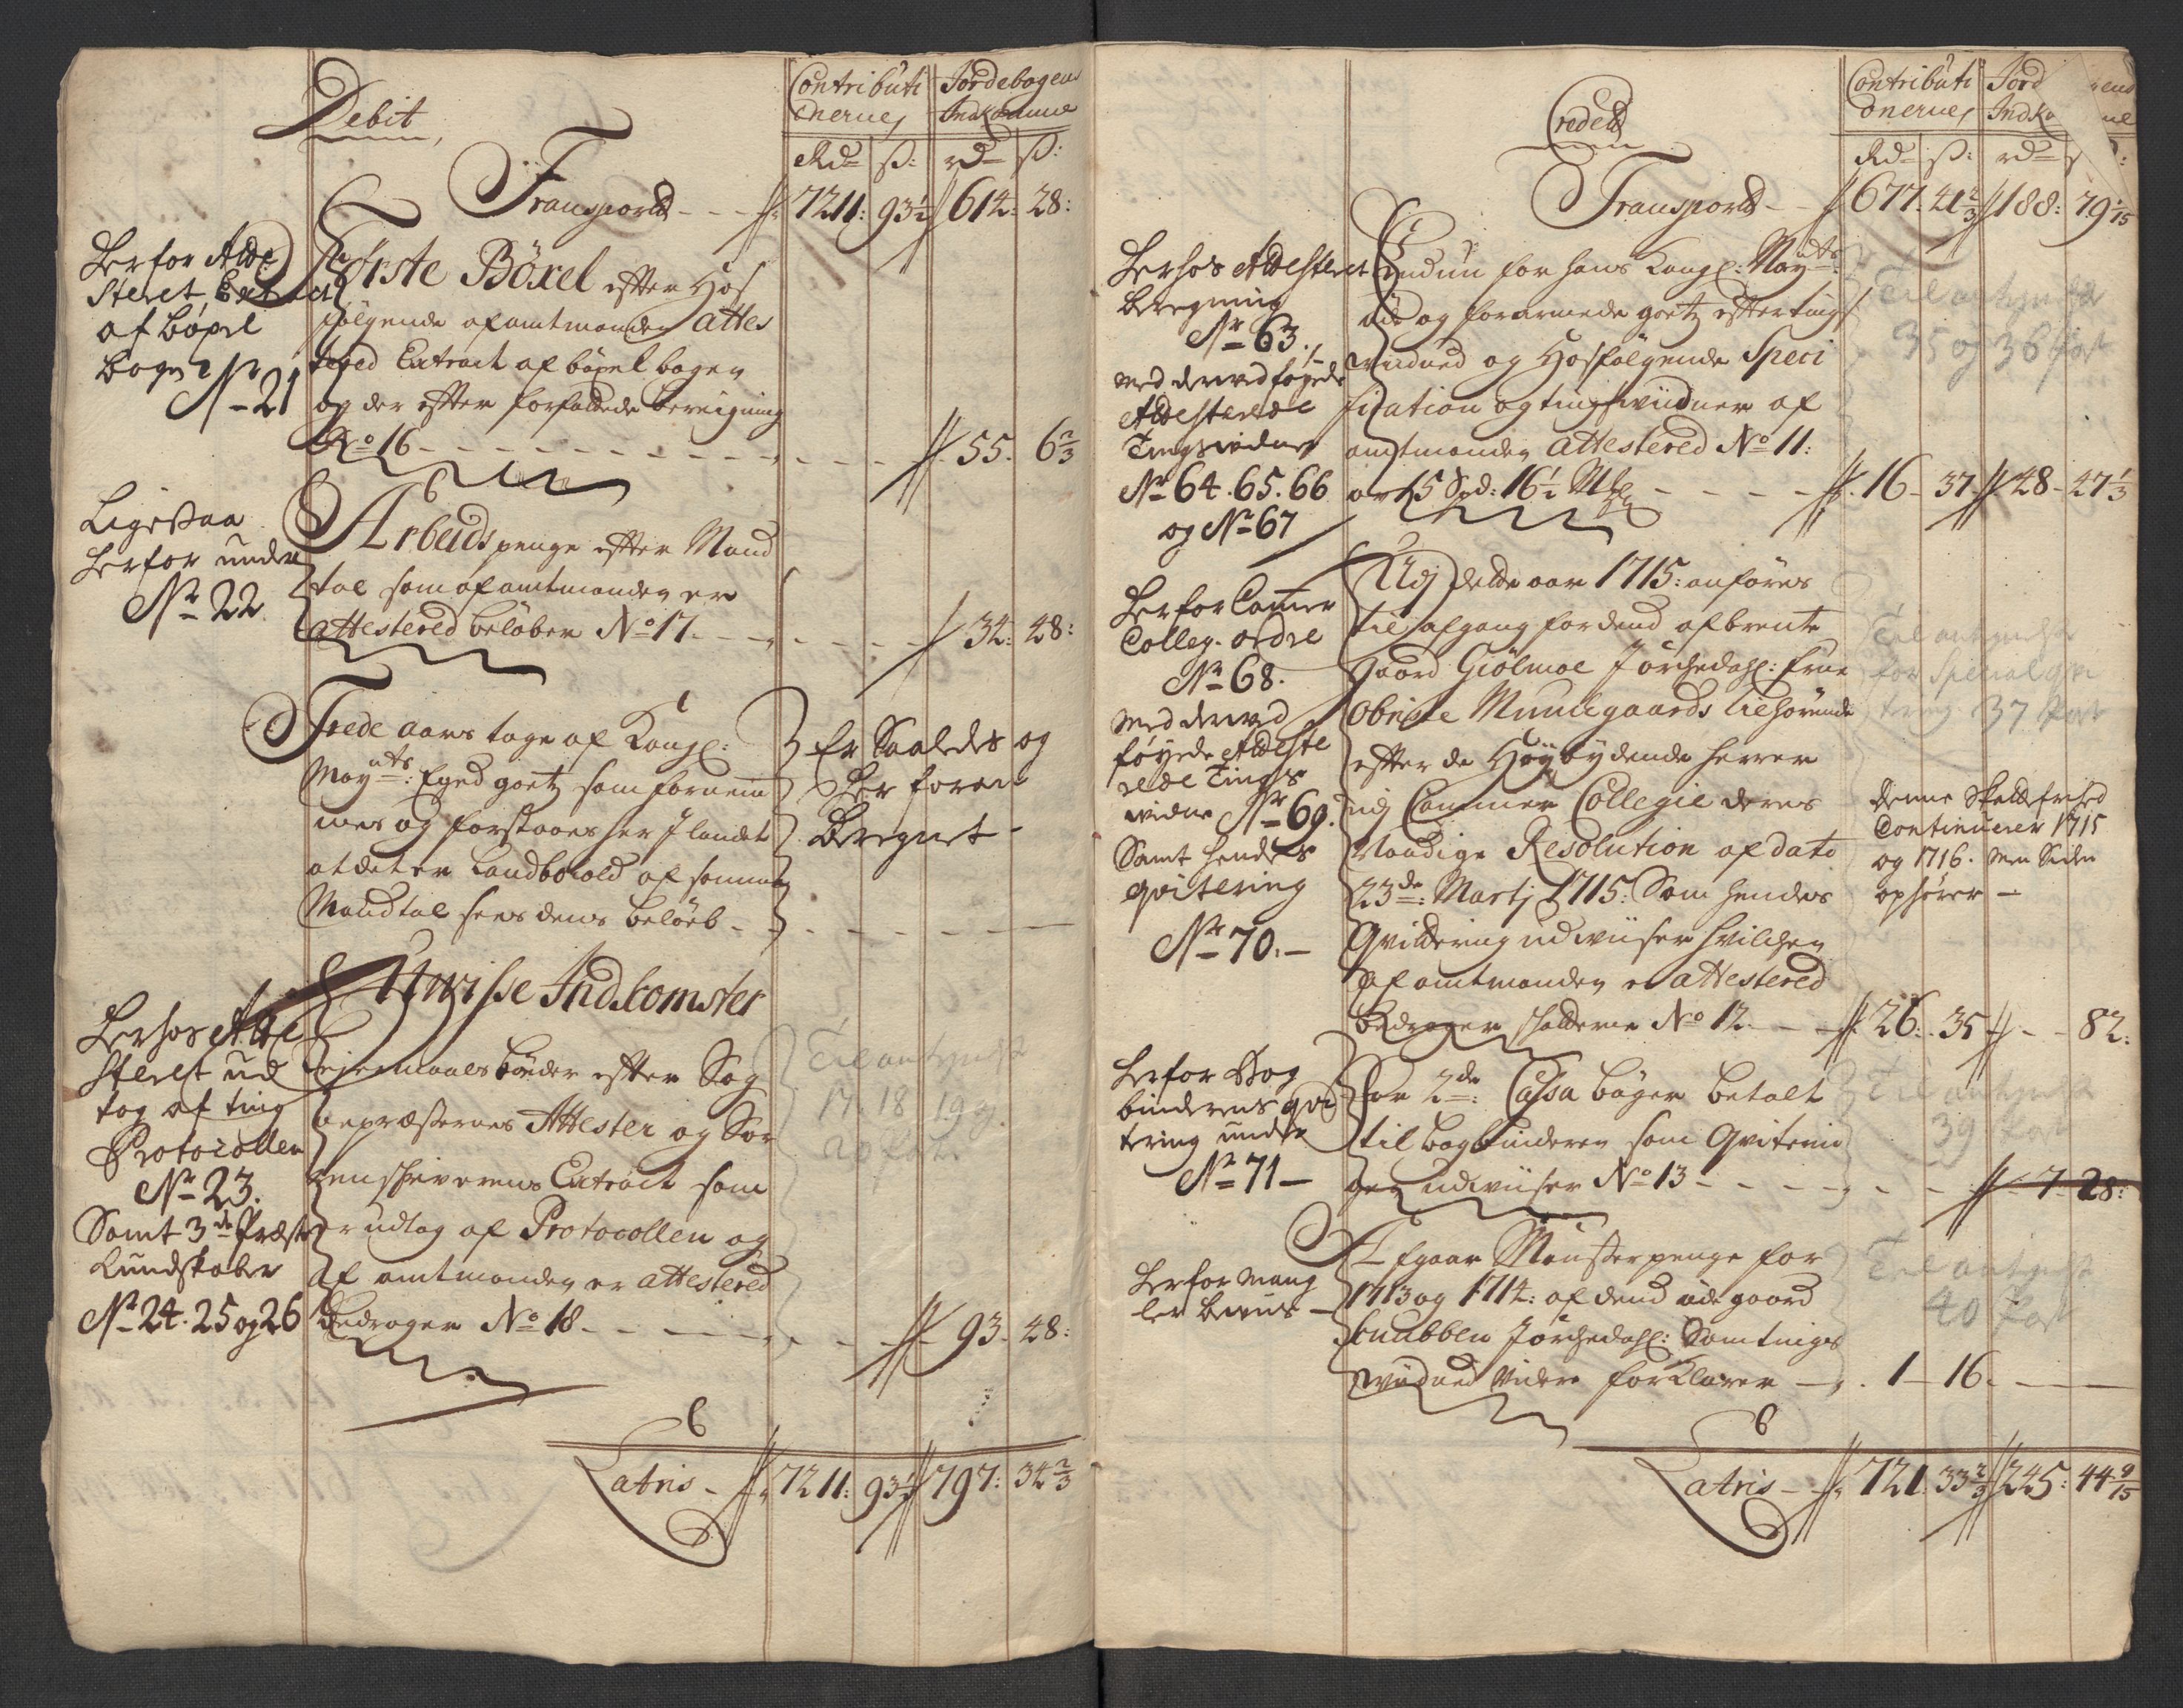 Debit
Contributi
onernes
Jordebogens
Indkomme
Rd ß: rd ß:
Transport - - - 7211: 93½ 614: 28:
Herfor Atte
steret Extract
af böxel
bogen
No 21
Förste Böxel efter Hos
fölgende af amtmanden attes
tered Extract af böxel bogen
og der efter forfattede beregning
No 16 - - - 55. 6⅔
Ligesaa
herfor under
No 22
Arbeids penge efter Mand
tal som af amtmanden er
attestered belöber No 17. - - - 34: 48:
Trede aars tage af Kongl:
Mayts: Eged goetz som fornem
mes og forstaaes her J landet
at det er Landbohold af samme
Mandtal sees dens belöb - - -
Er Saaledes og
her foran
Beregnet -
Uvisse Indkomster
Herhos Atte
steret ud
tog af ting
Protocollen
No 23.
Samt 3de Præste
Kundskaber
No 24. 25 og 26
Leiermaals böeder efter Sog
nepræsternes Attester og Sor
enschriverens Extract som
er udtog af Protocollen og
af amtmanden er attestered
bedrager No 18 - - - 93 - 48:
Til antegnelse
17. 18 19 og
20 post
Latris - 7211: 93½ 797: 34⅔
Credit
Contributi
onernes
Jord ens
Indko me
Rd ß: rd
Transport - - 677: 41⅔ 188: 79 1/15
Herhos Attesteret
beregning
No 63.
med derved föyede
Attesterede
Tingsvidner
No 64. 65. 66
og No 67
Endnu for hans Kongl: Mayts:
öde og forarmede goetz efter tings
vidned og Hosfölgende Speci
fication og tingsvidner af
amtmanden attestered No 11:
er 15 Spd: 16½ Mk - - - 16 - 37 48 - 27⅓
Til antegnelse
35 og 36 post
Herfor Camer
Colleg. ordre
No 68.
med derved
föyede Atteste
rede Tings
vidne No 69.
Samt hendes
qvitering
No 70. -
Udj dette aar 1715: anföres
til afgang for dend afbrente
Gaard Giölmoe J Örchedahl: frue
Obriste Munchegaards tilhörende
efter de Höybydende herrer
udj Cammer Collegie deres
Naadige Resolution af dato
23de: Martj 1715: Som hendes
Qvittering udviiser hvilchen
af amtmanden er attestered
bedrager schatterne No 12. - - 26: 35 - - 82:
Til antegnelse
for special qvi
tering 37 post
denne Skattefrihed
Continuerer 1715
og 1716. men Siden
ophører -
Herfor Bog
binderens qvi
tering under
No 71 -
For 2de: Cassa böger betalt
til bogbinderen som Qviterin
gen udviiser No 13 - - - 7 - 28:
Til antegnelse
39 post
Herfor mang
ler beviis -
Afgaar Mönsterpenge for
1713 og 1714: af dend öde gaard
Knubben J Örchedahl: Som tings
vidned videre forklarer - 1 - 16. - -
Til antegnelse
40 post
Latris - - 721. 33⅔ 245: 44 9/15